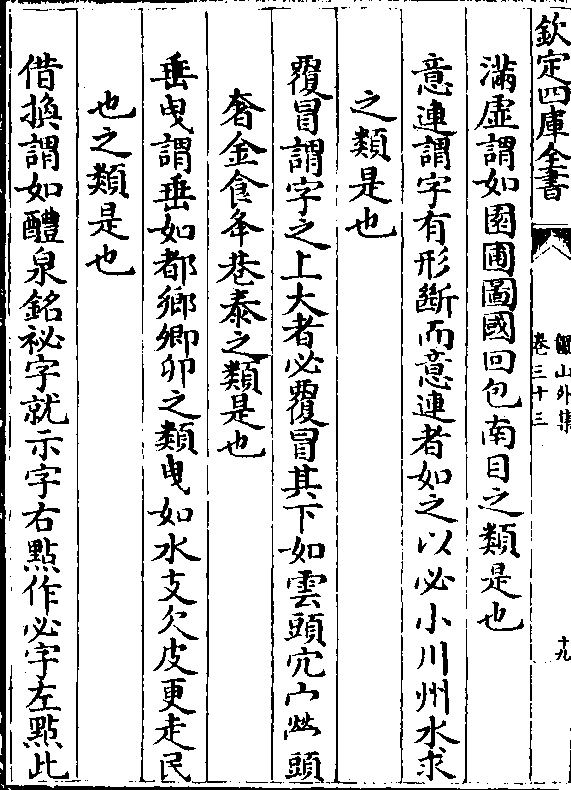 欽定四庫全書
儼山外集
卷三十三
十九
滿虛謂如園圃圖國回包南目之類是也
意連謂字有形斷而意連者如之以必小川州水求
之類是也
覆冒謂字之上大者必覆冒其下如雲頭穴宀𤇾頭
奢金食夅巷泰之類是也
垂曳謂垂如都鄉卿卯之類曳如水支欠皮更走民
也之類是也
借換謂如醴泉銘祕字就示字右點作必字左點此